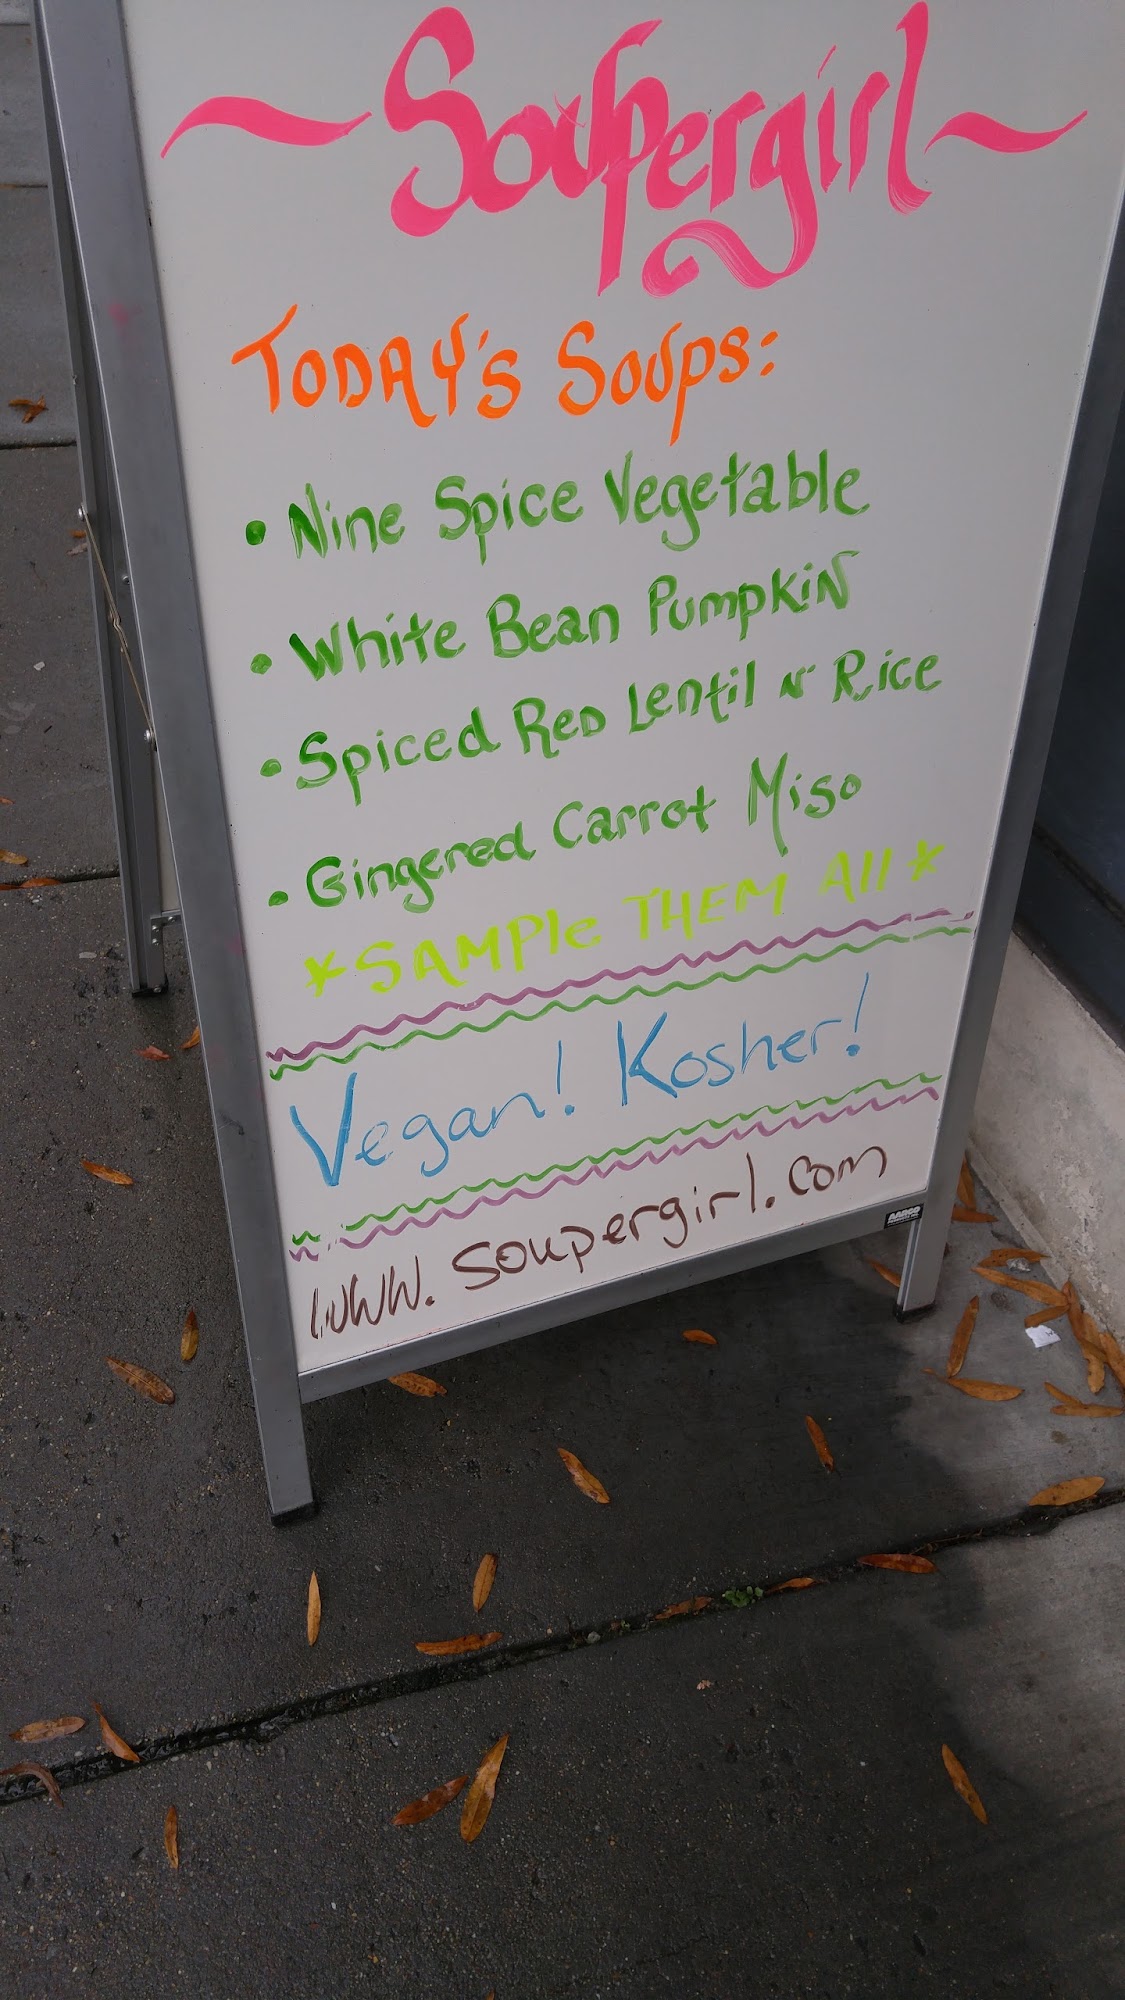 ~Soupergirl~
Today's Soups:
• Nine Spice Vegetable
• White Bean Pumpkin
• Spiced Red Lentil N' Rice
• Gingered Carrot Miso
*SAMPle THEM All*
Vegan! Kosher!
www.soupergirl.com
AARCO